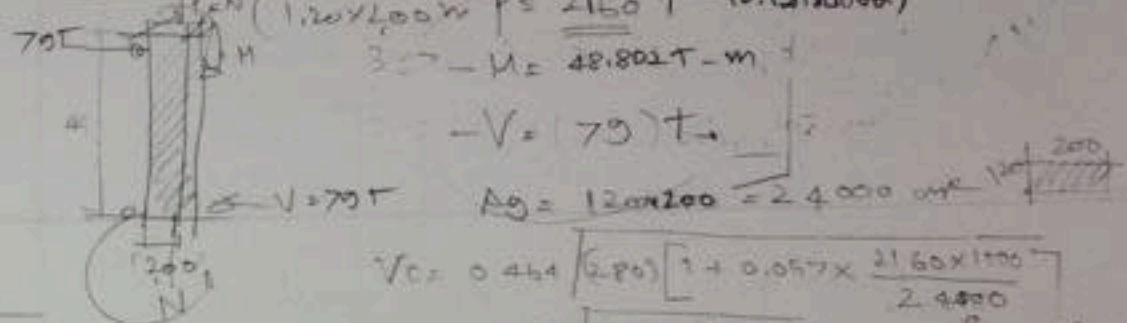 (1.20X2.00 m P = 2160 T
79T
M
- M = 48.802 T - m
4
- V = (79) t.
V = 79 T
Ag = 120x200 = 24000
120
200
200
N
Vc = 0.464 (280) [1 + 0.057 x 2160x1000
24000